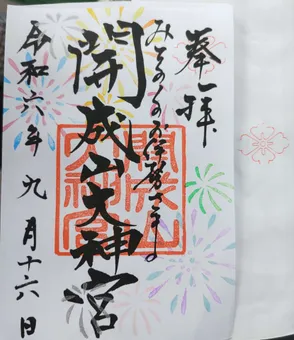 奉拝
みちのくのお伊勢さま
開成山大神宮
令和六年九月十六日
開成山大神宮